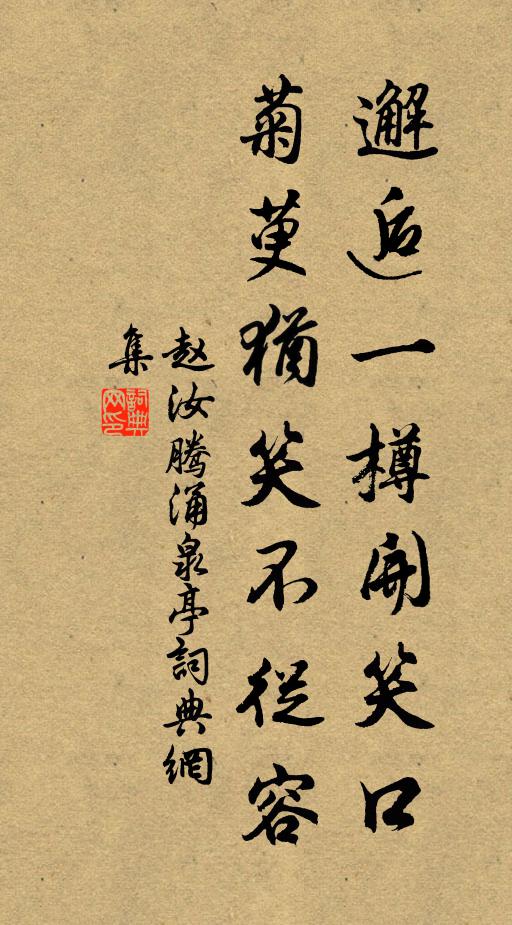 邂逅一樽開笑口
菊萸猶笑不從容
赵汝腾涌泉亭詞典網
集
詞典网印